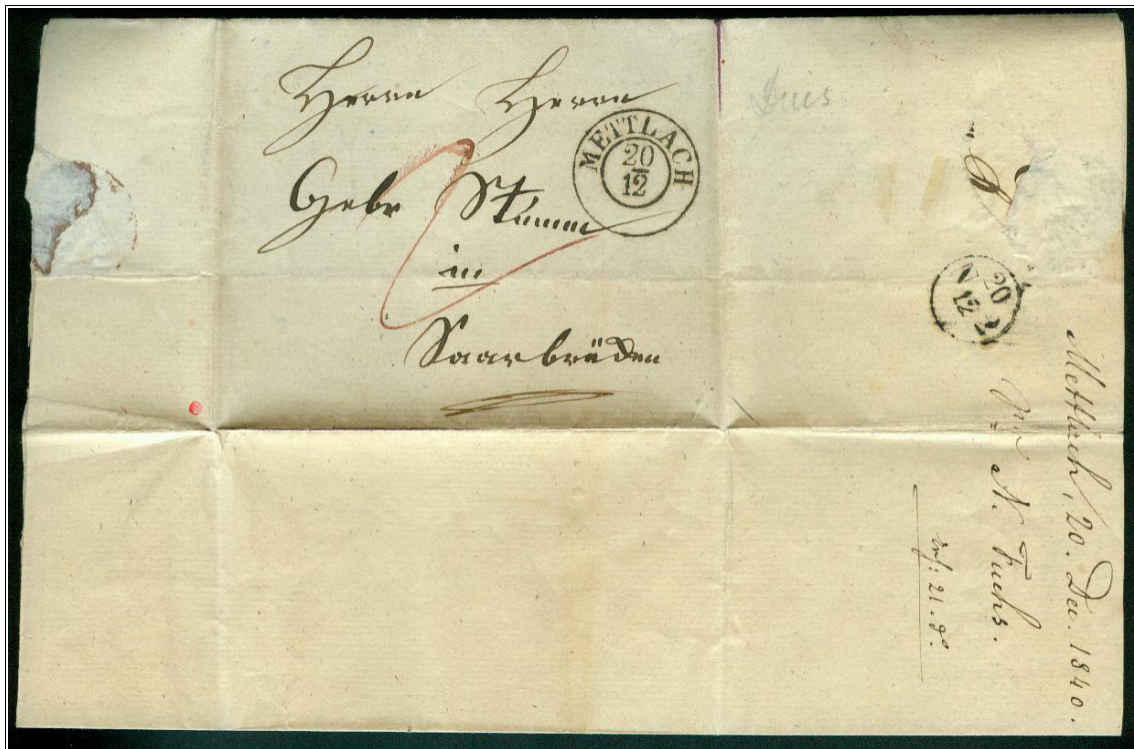 Herrn Herrn
Gebr Stumm
in
Saarbrücken
METTLACH
20
12
2
20
12
N 2
Mettlach, 20. Dec. 1840.
N. Fuchs.
21. d°